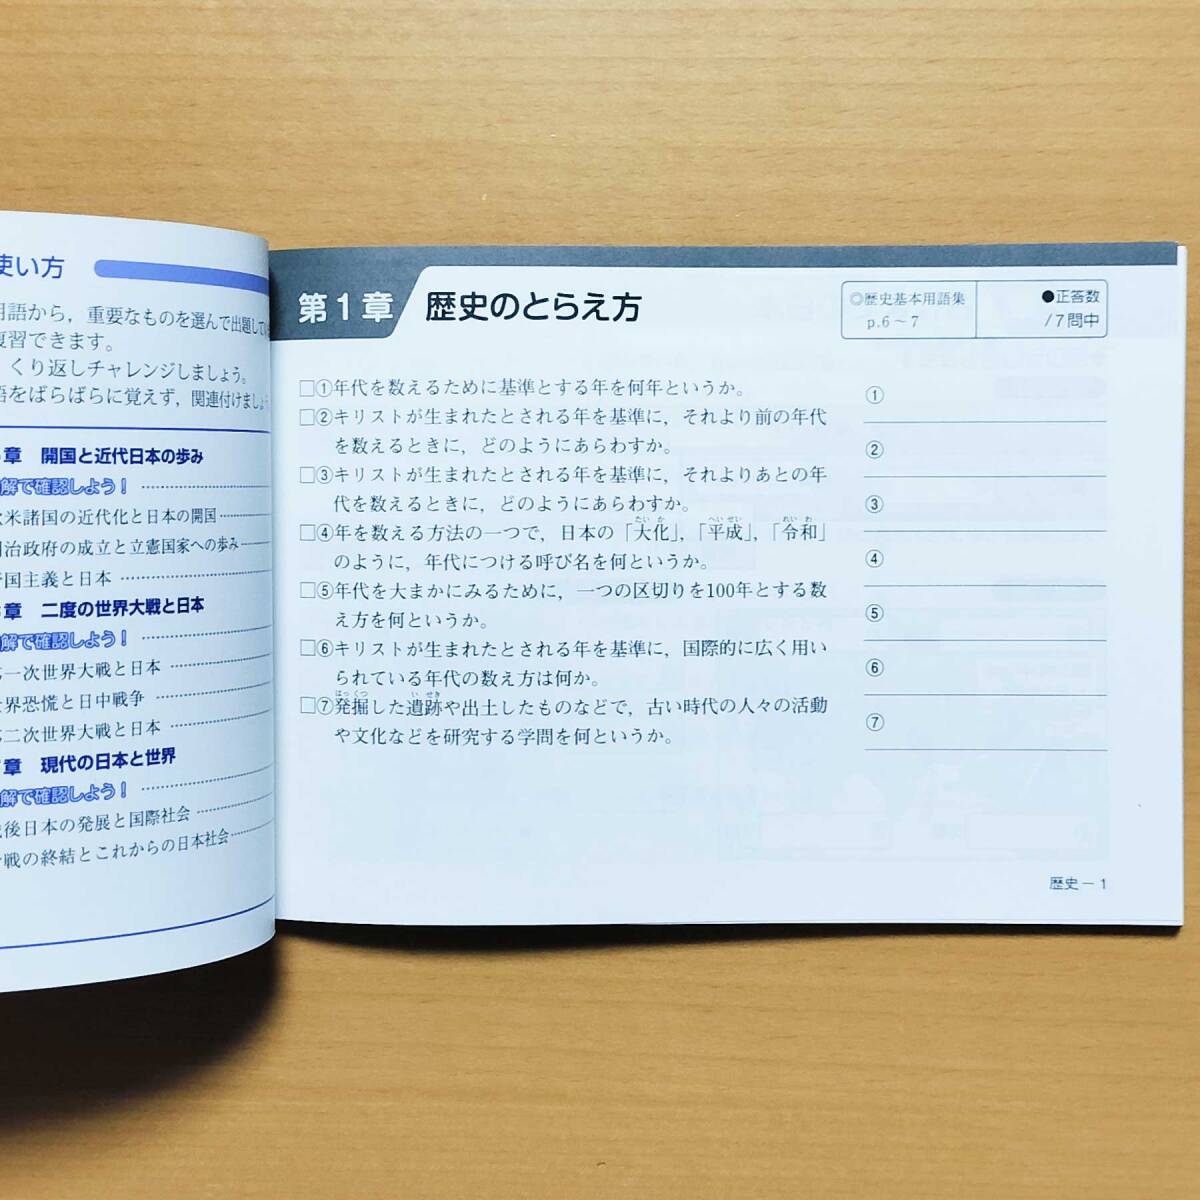 使い方
用語から，重要なものを選んで出題して
復習できます。
くり返しチャレンジしましょう。
語をばらばらに覚えず，関連付けましょ
章 開国と近代日本の歩み
解で確認しよう！
欧米諸国の近代化と日本の開国
明治政府の成立と立憲国家への歩み
帝国主義と日本
章 二度の世界大戦と日本
解で確認しよう！
第一次世界大戦と日本
世界恐慌と日中戦争
第二次世界大戦と日本
章 現代の日本と世界
解で確認しよう！
戦後日本の発展と国際社会
戦の終結とこれからの日本社会
第1章 歴史のとらえ方
◎歴史基本用語集
p.6～7
●正答数
/7問中
□①年代を数えるために基準とする年を何年というか。
□②キリストが生まれたとされる年を基準に，それより前の年代
を数えるときに，どのようにあらわすか。
□③キリストが生まれたとされる年を基準に，それよりあとの年
代を数えるときに，どのようにあらわすか。
たいか へいせい れいわ
□④年を数える方法の一つで，日本の「大化」，「平成」，「令和」
のように，年代につける呼び名を何というか。
□⑤年代を大まかにみるために，一つの区切りを100年とする数
え方を何というか。
□⑥キリストが生まれたとされる年を基準に，国際的に広く用い
られている年代の数え方は何か。
はっくつ いせき
□⑦発掘した遺跡や出土したものなどで，古い時代の人々の活動
や文化などを研究する学問を何というか。
①
②
③
④
⑤
⑥
⑦
歴史－1